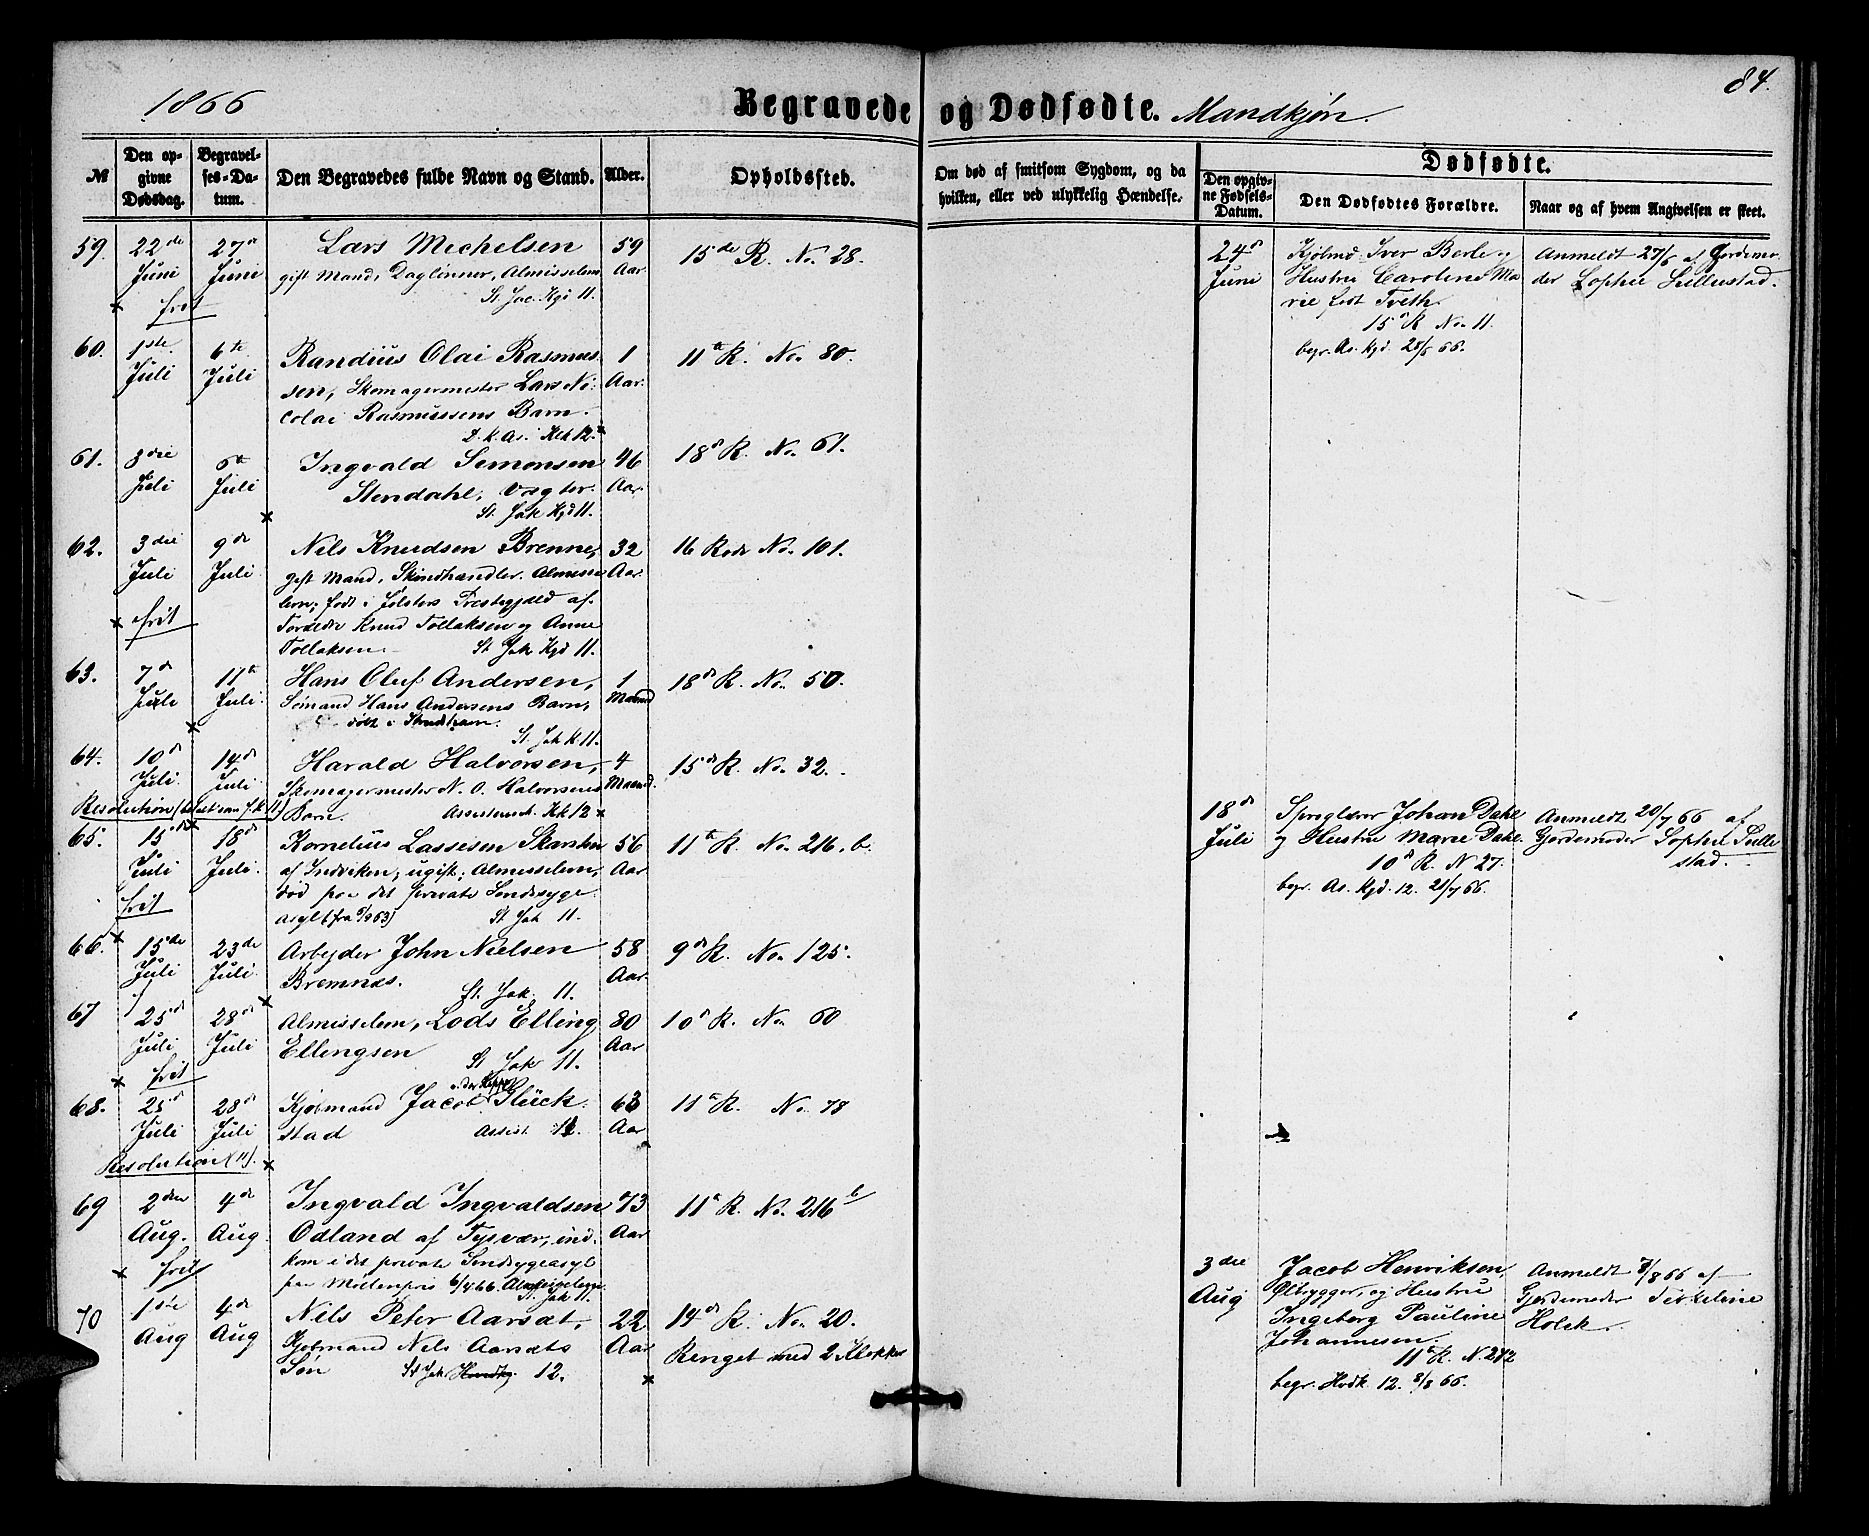 1866
Begravede og Dødfødte. Mandkjøn.
84.
№
Den opgivne Dødsdag.
Begravelses-Datum.
Den Begravedes fulde Navn og Stand.
Alder.
Opholdssted.
Om død af smitsom Sygdom, og da hvilken, eller ved ulykkelig Hændelse.
Dødfødte.
Den opgivne Fødsels-Datum.
Den Dødfødtes Forældre.
Naar og af hvem Angivelsen er skeet.
59. 22de 27de Lars Michelsen 59 15de R. No. 28.
Juni Juni gift Mand, Daglønner, Almisselem Aar
St. Jac. Kgd 11.
frit
24de Kjøbmd Iver Berle og Anmeldt 27/6 af Gjordemo-
Juni Hustru Caroline Ma der Sophie Sellestad.
rie født Tveth.
15de R No. 11.
begr. As. Kgd. 28/6 66.
60. 1ste 6te Randius Olai Rasmus 1 11te R. No. 80.
Juli Juli sen, Skomagermester Lars Ni- Aar.
colai Rasmussens Barn.
D. k. As. Klk 12.
61. 3die 6te Ingvald Simonsen 46 18de R. No. 61.
Juli Juli Stendahl, Vægter. Aar.
St. Jak Kgd 11.
62. 3die 9de Nels Knudsen Brenne, 32 16 Rode No. 101.
Juli Juli gift Mand, Skindhandler. Almisse Aar.
lem; født i Jølsters Prestegjæld af
frit Forældre Knud Tollaksen og Anne
Tollaksen. St. Jak Kgd 11.
63. 7de 11te Hans Oluf Andersen, 1 18de R. No. 50.
Juli Juli. Sømand Hans Andersens Barn, Maaned
født i
St. Jak K. 11.
64. 10de 14de Harald Halvorsen, 4 15de R. No. 32.
Juli. Juli Skomagermester N. O. Halvorsens Maaned.
Resolution Barn. Assistents. Klk 12
65. 15de 18de Kornelius Lassesen Skanke 56 11te R. No. 216. b.
Juli Juli. af Indviken, ugift, Almisselem, Aar.
død paa det private Sindssyge
frit asyl St. Jak 11.
18de Johan Dahl Anmeldt 20/7 66 af
Juli og Hustru Marie Dahl. Gjordemoder Sophie Selle
10de R. N 27. stad.
begr. As. Kgd. 12. 21/7 66.
66. 15de 23de Arbeyder John Nielsen 58 9de R. No. 125.
Juli Juli. Bremnæs. St. Jak. 11. Aar.
67 25de 28de Almisselem, Lods Elling 80 10de R. No. 60
Juli Juli Ellingsen St Jak 11. Aar
frit
68. 25de 28de Kjøbmand Jacob Slück- 63 11te R. No. 78
Juli Juli stad Assist. 12. Aar
Resolution (11).
69 2den 4de Ingvald Ingvaldsen 73 11te R. No. 216 b
Aug. Aug. Odland af Tysvær, ind- Aar
kom i det private Sindssygeasyl
frit paa 6/4 66.
St. Jak 11.
3die Jacob Henriksen, Anmeldt 7/8 66 af
Aug Ølbrygger, og Hustru Gjordemoder Terkeline
Ingeborg Pauline Holck.
Johannesen.
11te R. N. 272
begr. Hvdk. 12. 8/8 66.
70 1ste 4de Nils Peter Aarsæt, 22 14de R. No. 20.
Aug Aug Kjøbmand Nils Aarsæts Aar Renget med 2 Klokker
Søn St Jak 12.